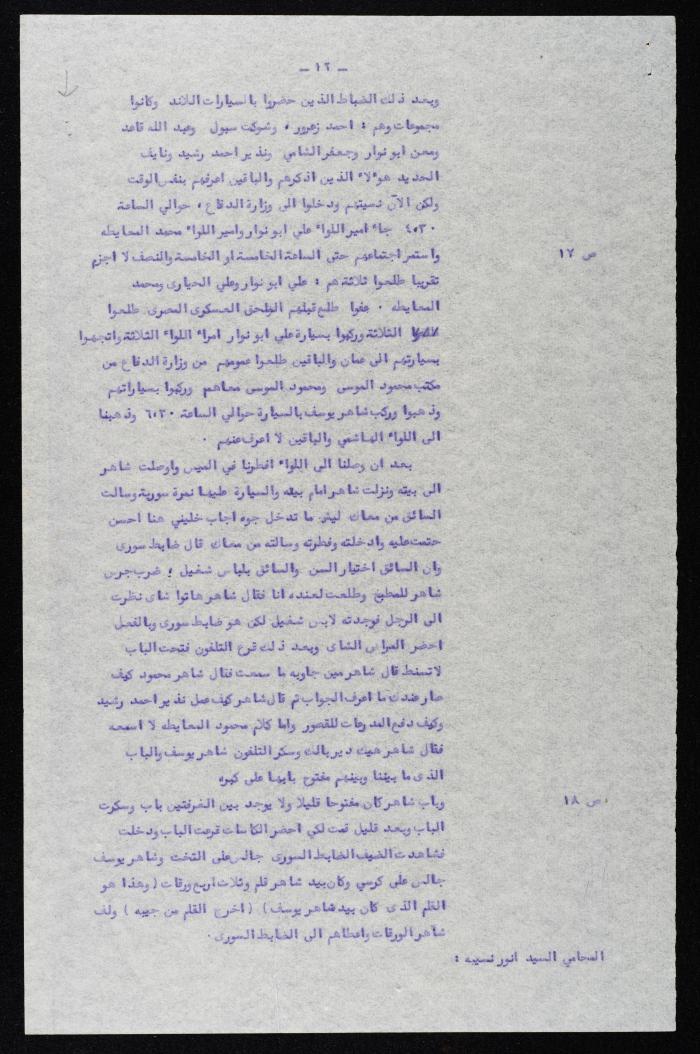 - ١٢ -
وبعد ذلك الضباط الذين حضروا بالسيارات اللاند وكانوا
مجموعات وهم : احمد زعرور ، وشوكت سبول وعبد الله قاعد
ومعن ابو نوار وجعفر الشامي ونذير احمد رشيد ونايف
الحديد هو"لا" الذين اذكرهم والباقين اعرفهم بنفس الوقت
ولكن الآن نسيتهم ودخلوا الى وزارة الدفاع ، حوالي الساعة
٤،٣٠ جا" امير اللوا" علي ابو نوار وامير اللوا" محمد المعايطه
واستمر اجتماعهم حتى الساعة الخامسة او الخامسة والنصف لا اجزم
ص ١٧
تقريبا طلعوا ثلاثة هم : علي ابو نوار وعلي الحيارى ومحمد
المعايطه . عفوا طلع قبلهم الملحق العسكرى المصرى طلعوا
الثلاثة وركبوا بسيارة علي ابو نوار امرا" اللوا" الثلاثة واتجهوا
بسيارتهم الى عمان والباقين طلعوا عمومهم من وزارة الدفاع من
مكتب محمود الموسى ومحمود الموسى معاهم وركبوا بسياراتهم
وذهبوا وركب شاهر يوسف بالسيارة حوالي الساعة ٦،٣٠ وذهبنا
الى اللوا" الهاشمي والباقين لا اعرف عنهم .
بعد ان وصلنا الى اللوا" افطرنا في الميس واوصلت شاهر
الى بيته ونزلت شاهر امام بيته والسيارة عليها نمرة سورية وسالت
السائق من معاك ليش ما تدخل جوه اجاب خليني هنا احسن
حتمت عليه وادخلته وفطرته وسالته من معاك قال ضابط سورى
وان السائق اختيار السن والسائق بلباس شغيل ؛ ضرب جرس
شاهر للمطبخ وطلعت لعنده انا فقال شاهر هاتوا شاى نظرت
الى الرجل فوجدته لابس شغيل لكن هو ضابط سورى وبالفعل
احضر المراس الشاى وبعد ذلك قرع التلفون فتحت الباب
لاتسنط قال شاهر مين جاوبه ما سمعت فقال شاهر محمود كيف
صار عندك ما اعرف الجواب ثم قال شاهر كيف عمل نذير احمد رشيد
وكيف دفع المدرعات للقصور واما كلام محمود المعايطه لا اسمعه
فقال شاهر هيك دير بالك وسكر التلفون شاهر يوسف والباب
الذى ما بيننا وبينهم مفتوح بابها على كبره
وباب شاهر كان مفتوحا قليلا ولا يوجد بين الغرفتين باب وسكرت
ص ١٨
الباب وبعد قليل قمت لكي احضر الكاسات قرعت الباب ودخلت
فشاهدت الضيف الضابط السورى جالس على التخت وشاهر يوسف
جالس على كرسي وكان بيد شاهر قلم وثلاث اربع ورقات ( وهذا هو
القلم الذى كان بيد شاهر يوسف ) ( اخرج القلم من جيبه ) ولف
شاهر الورقات واعطاهم الى الضابط السورى .
المحامي السيد انور نسيبه :